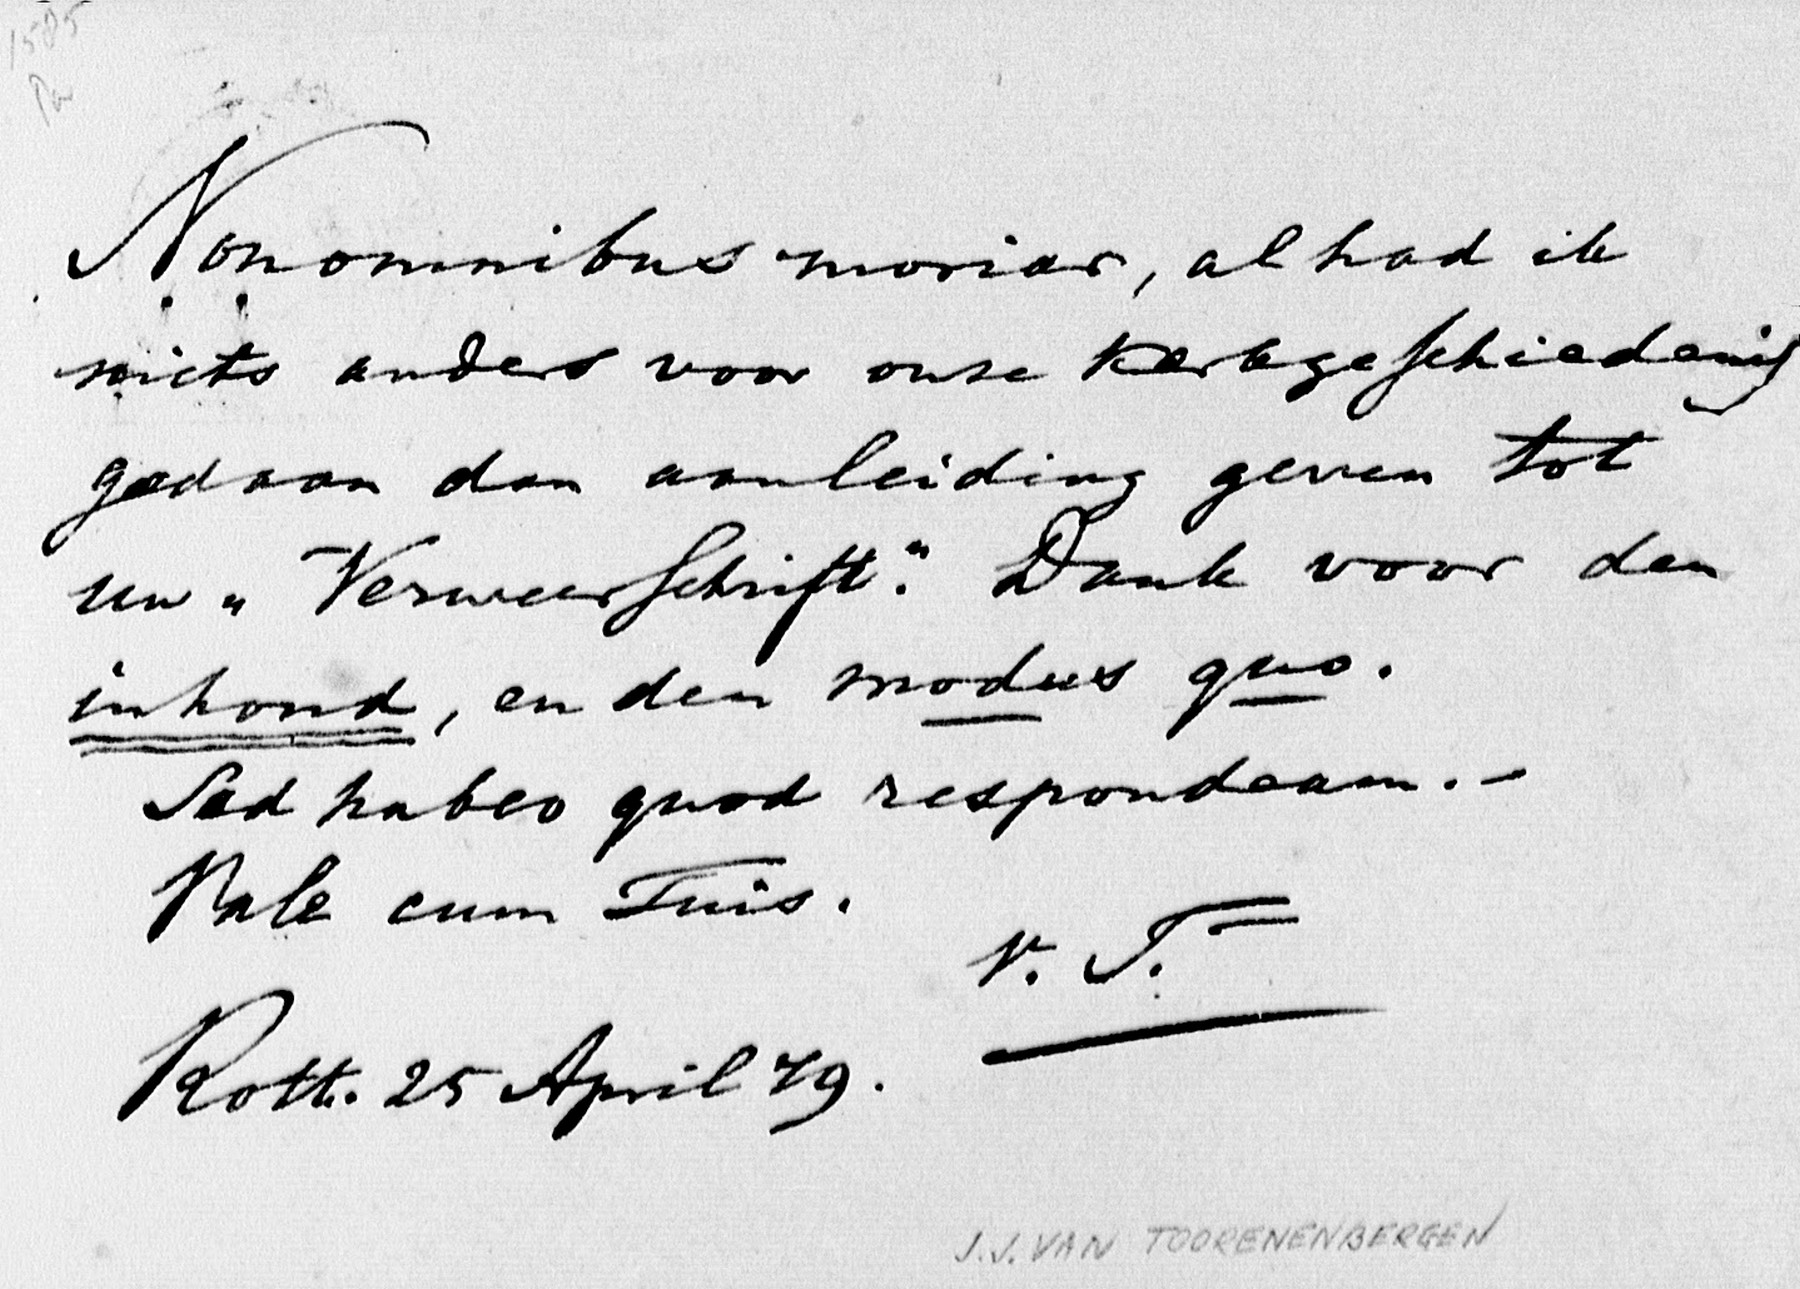 1585
Non omnibus moriar, al had ik
niets anders voor onze kerkgeschiedenis
gedaan dan aanleiding geven tot
uw „Verweerschrift.” Dank voor den
inhoud, en den modus quo.
Sed habeo quod respondeam. –
Vale cum Tuis.
v. T.
Rott. 25 April 79.
J.J. VAN TOORENENBERGEN